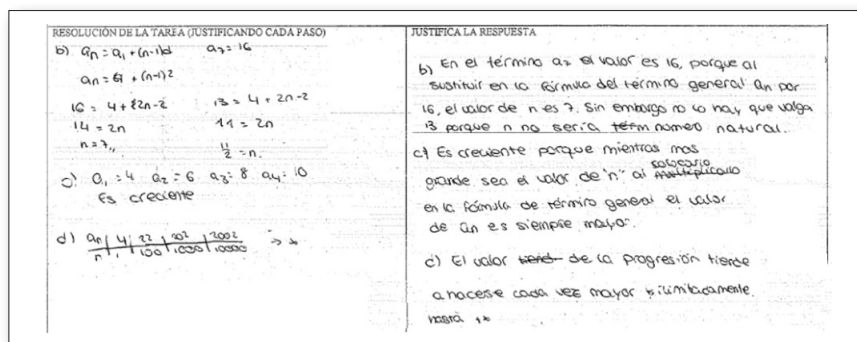 RESOLUCIÓN DE LA TAREA (JUSTIFICANDO CADA PASO)
b) an = a1 + (n-1)d a7 = 16
an = 4 + (n-1)2
16 = 4 + 2n-2 13 = 4 + 2n-2
14 = 2n 11 = 2n
n = 7,, 11/2 = n.
c) a1 = 4 a2 = 6 a3 = 8 a4 = 10
Es creciente
d) an | 4 | 22 | 202 | 2002
n | 1 | 100 | 1000 | 10000 → +∞
JUSTIFICA LA RESPUESTA
b) En el término a7 el valor es 16, porque al
sustituir en la fórmula del término general an por
16, el valor de n es 7. Sin embargo no lo hay que valga
13 porque n no sería term numero natural.
c) Es creciente porque mientras mas
grande sea el valor de "n" al multiplicarlo
en la fórmula de término general el valor
de an es siempre mayor.
c) El valor tiend de la progresión tiende
a hacerse cada vez mayor ilimitadamente.
hasta +∞